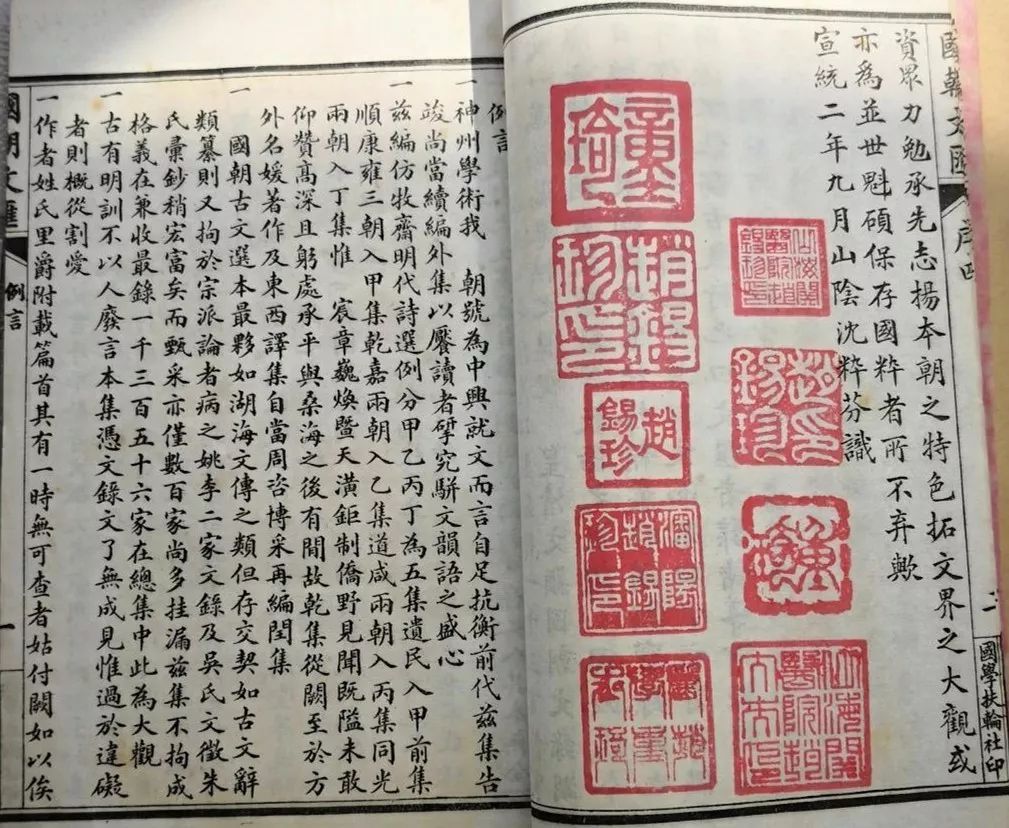 國朝文匯
序
二
國學扶輪社印
資眾力勉承先志揚本朝之特色拓文界之大觀或
亦為並世魁碩保存國粹者所不弃歟
宣統二年九月山陰沈粹芬識
趙錫珍印
趙錫珍印
趙錫珍
瀋陽趙錫珍印
例言
一神州學術我 朝號為中興就文而言自足抗衡前代兹集告
竣尚當續編外集以饜讀者孴究駢文韻語之盛心
一兹編仿牧齋明代詩選例分甲乙丙丁為五集遺民入甲前集
順康雍三朝入甲集乾嘉兩朝入乙集道咸兩朝入丙集同光
兩朝入丁集惟 宸章巍煥暨天潢鉅制僑野見聞既隘未敢
仰贊高深且躬處承平與桑海之後有間故乾集從闕至於方
外名媛著作及東西譯集自當周咨博采再編閏集
一 國朝古文選本最夥如湖海文傳之類但存交契如古文辭
類纂則又拘於宗派論者病之姚李二家文錄及吳氏文徵朱
氏彙鈔稍宏富矣而甄采亦僅數百家尚多挂漏兹集不拘成
格義在兼收最錄一千三百五十六家在總集中此為大觀
一古有明訓不以人廢言本集憑文錄文了無成見惟過於違礙
者則概從割愛
一作者姓氏里爵附載篇首其有一時無可查者姑付闕如以俟
國朝文匯
例言
一